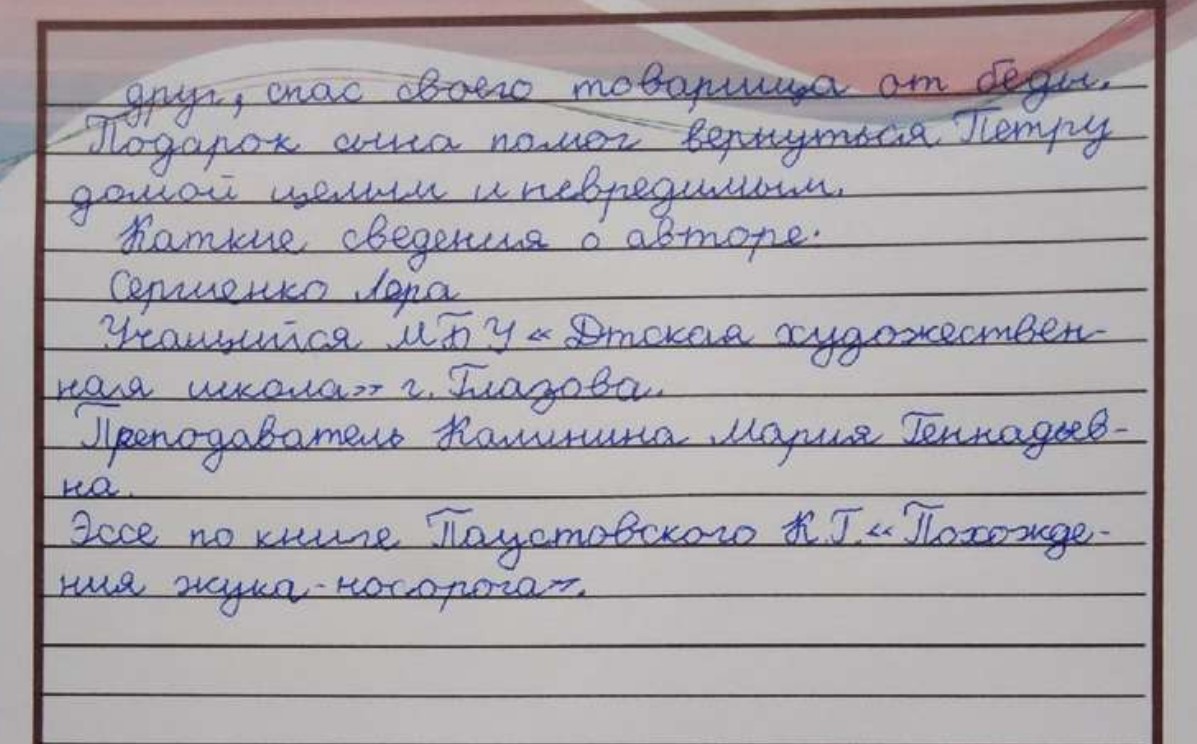 друг, спас своего товарища от беды.
Подарок сына помог вернуться Петру
домой целым и невредимым.
Каткие сведения о авторе.
Сергиенко Лера
Учащийся МБУ « Дтская художествен-
ная школа» г. Глазова.
Преподаватель Калинина Мария Геннадьев-
на.
Эссе по книге Паустовского К.Г. « Похожде-
ния жука - носорога».